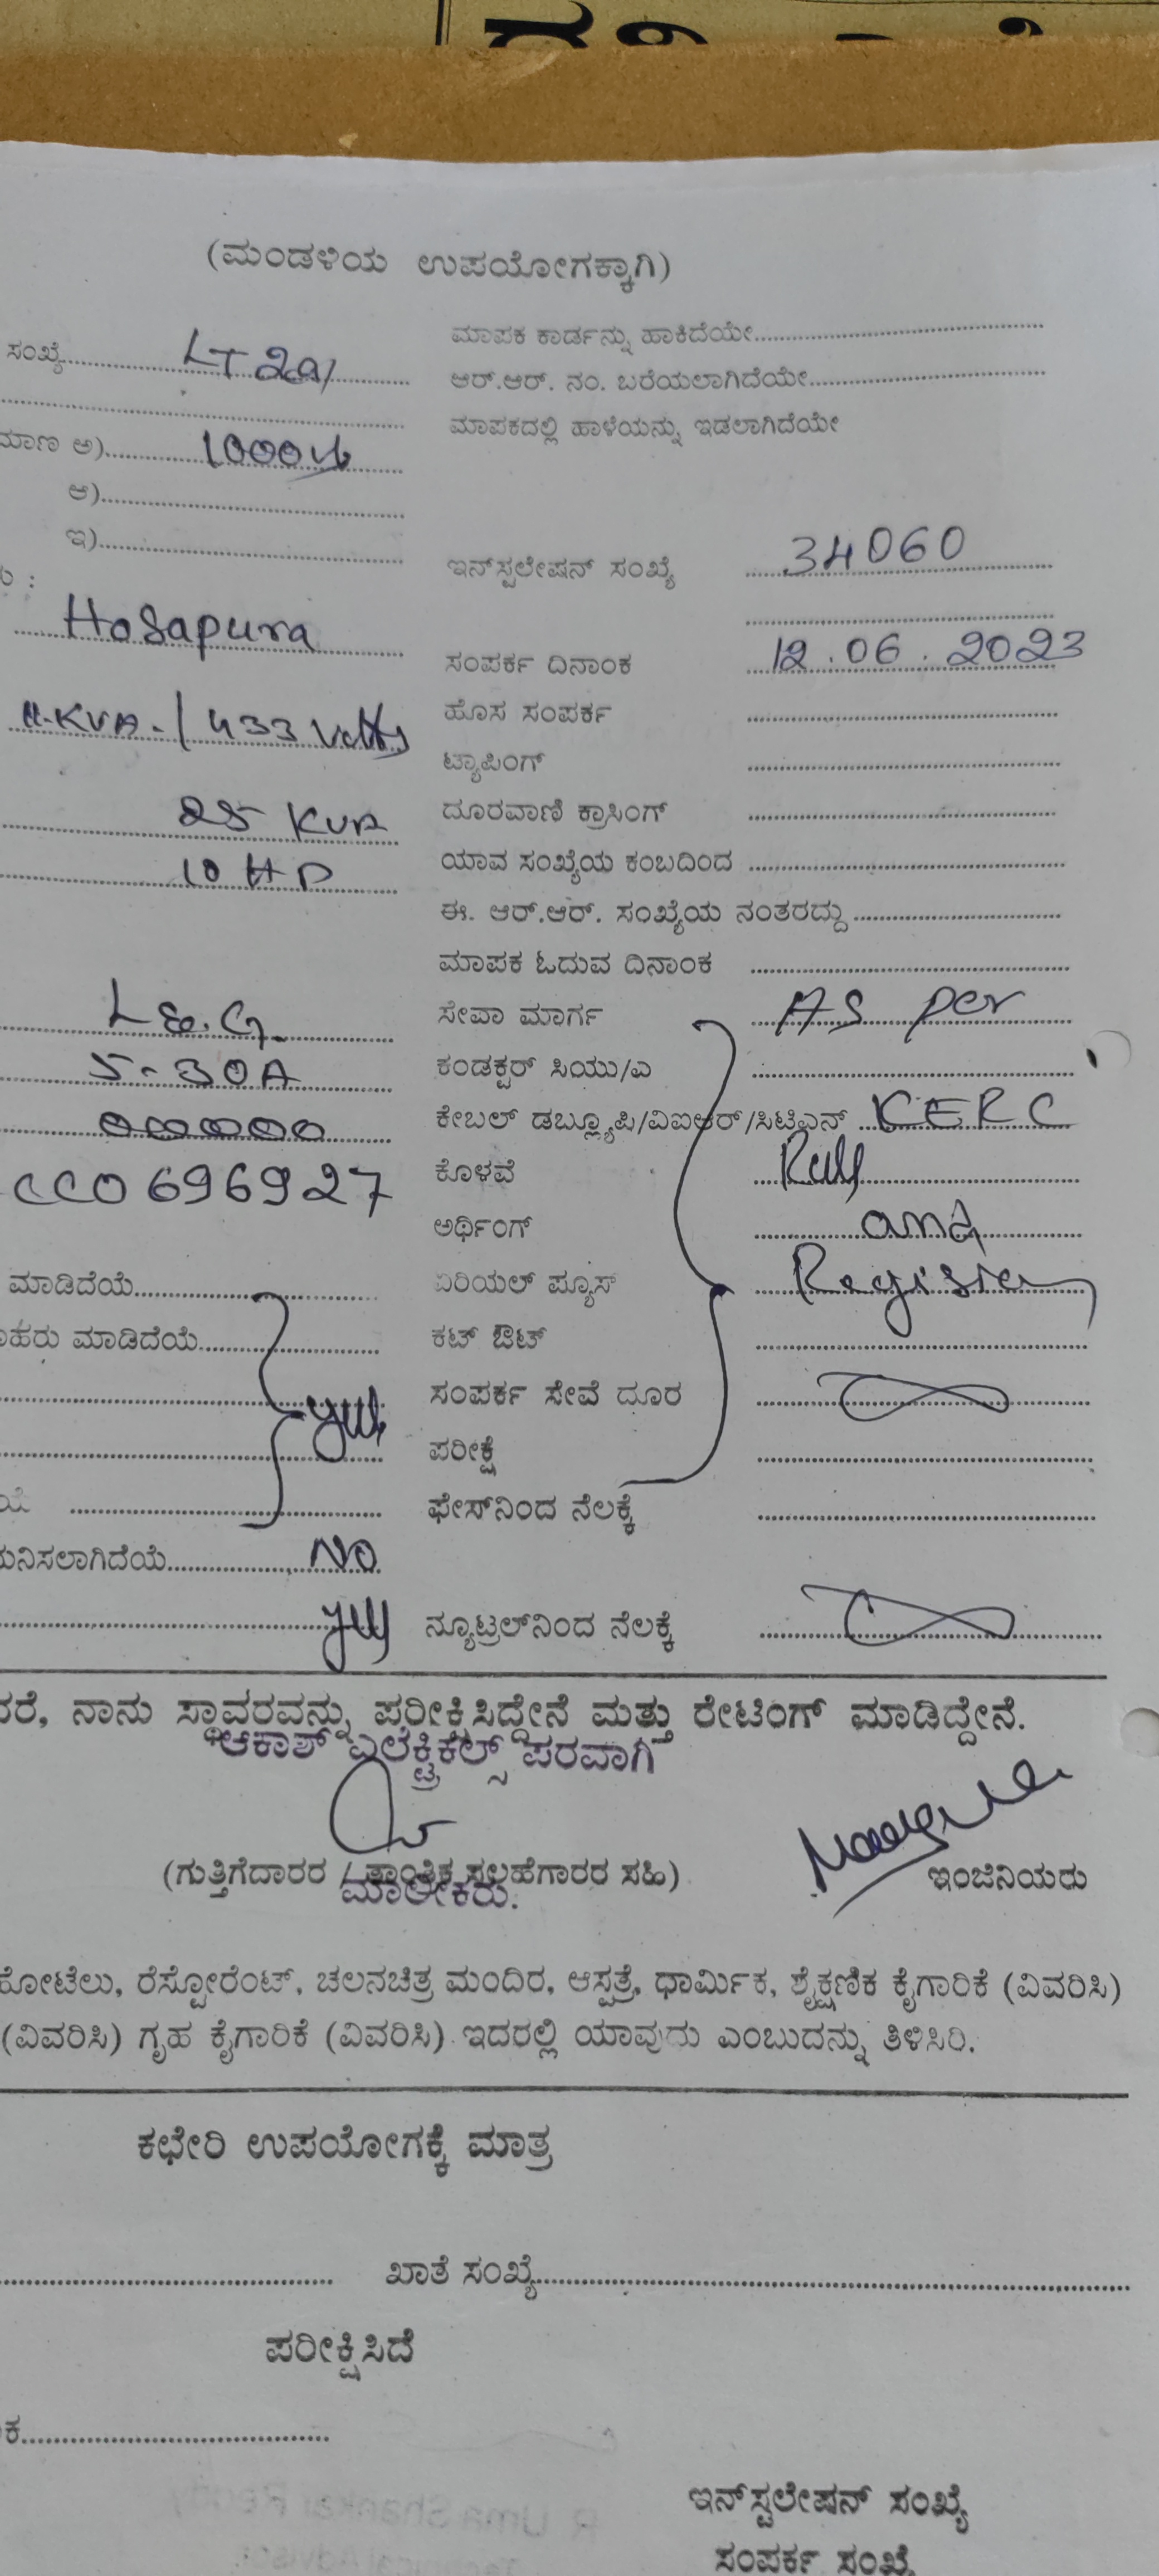 (ಮಂಡಳಿಯ ಉಪಯೋಗಕ್ಕಾಗಿ)
ಸಂಖ್ಯೆ LT 2a1 ಮಾಪಕ ಕಾರ್ಡನ್ನು ಹಾಕಿದೆಯೇ
ಆರ್.ಆರ್. ನಂ. ಬರೆಯಲಾಗಿದೆಯೇ
ಮಾಣ ಅ) 1000 ಮಾಪಕದಲ್ಲಿ ಹಾಳೆಯನ್ನು ಇಡಲಾಗಿದೆಯೇ
ಆ)
ಇ) ಇನ್‌ಸ್ಟಲೇಷನ್ ಸಂಖ್ಯೆ 34060
Hosapura ಸಂಪರ್ಕ ದಿನಾಂಕ 12.06.2023
11-KVA-/433 Volts ಹೊಸ ಸಂಪರ್ಕ
ಟ್ಯಾಪಿಂಗ್
25 KVA ದೂರವಾಣಿ ಕ್ರಾಸಿಂಗ್
10 HP ಯಾವ ಸಂಖ್ಯೆಯ ಕಂಬದಿಂದ
ಈ. ಆರ್.ಆರ್. ಸಂಖ್ಯೆಯ ನಂತರದ್ದು
ಮಾಪಕ ಓದುವ ದಿನಾಂಕ
L&G. ಸೇವಾ ಮಾರ್ಗ As per
5-30A ಕಂಡಕ್ಟರ್ ಸಿಯು/ಎ
000000 ಕೇಬಲ್ ಡಬ್ಲ್ಯೂಪಿ/ವಿಐಆರ್/ಸಿಟಿಎನ್ KERC
CCO696927 ಕೊಳವೆ Rules
ಅರ್ಥಿಂಗ್ and
ಮಾಡಿದೆಯೆ ಏರಿಯಲ್ ಪ್ಯೂಸ್ Register
ಮಾಡಿದೆಯೆ ಕಟ್ ಔಟ್
yes ಸಂಪರ್ಕ ಸೇವೆ ದೂರ
ಪರೀಕ್ಷೆ
ಯೆ ಫೇಸ್‌ನಿಂದ ನೆಲಕ್ಕೆ
ನಿಸಲಾಗಿದೆಯೆ No
yes ನ್ಯೂಟ್ರಲ್‌ನಿಂದ ನೆಲಕ್ಕೆ
ದರೆ, ನಾನು ಸ್ಥಾವರವನ್ನು ಪರೀಕ್ಷಿಸಿದ್ದೇನೆ ಮತ್ತು ರೇಟಿಂಗ್ ಮಾಡಿದ್ದೇನೆ.
ಆಕಾಶ್ ಎಲೆಕ್ಟ್ರಿಕಲ್ಸ್ ಪರವಾಗಿ
(ಗುತ್ತಿಗೆದಾರರ / ತಾಂತ್ರಿಕ ಸಲಹೆಗಾರರ ಸಹಿ) ಇಂಜಿನಿಯರು
ಮಾಲೀಕರು.
ಹೋಟೆಲು, ರೆಸ್ಟೋರೆಂಟ್, ಚಲನಚಿತ್ರ ಮಂದಿರ, ಆಸ್ಪತ್ರೆ, ಧಾರ್ಮಿಕ, ಶೈಕ್ಷಣಿಕ ಕೈಗಾರಿಕೆ (ವಿವರಿಸಿ)
(ವಿವರಿಸಿ) ಗೃಹ ಕೈಗಾರಿಕೆ (ವಿವರಿಸಿ) ಇದರಲ್ಲಿ ಯಾವುದು ಎಂಬುದನ್ನು ತಿಳಿಸಿರಿ.
ಕಛೇರಿ ಉಪಯೋಗಕ್ಕೆ ಮಾತ್ರ
ಖಾತೆ ಸಂಖ್ಯೆ
ಪರೀಕ್ಷಿಸಿದೆ
ಕ
ಇನ್‌ಸ್ಟಲೇಷನ್ ಸಂಖ್ಯೆ
ಸಂಪರ್ಕ ಸಂಖ್ಯೆ